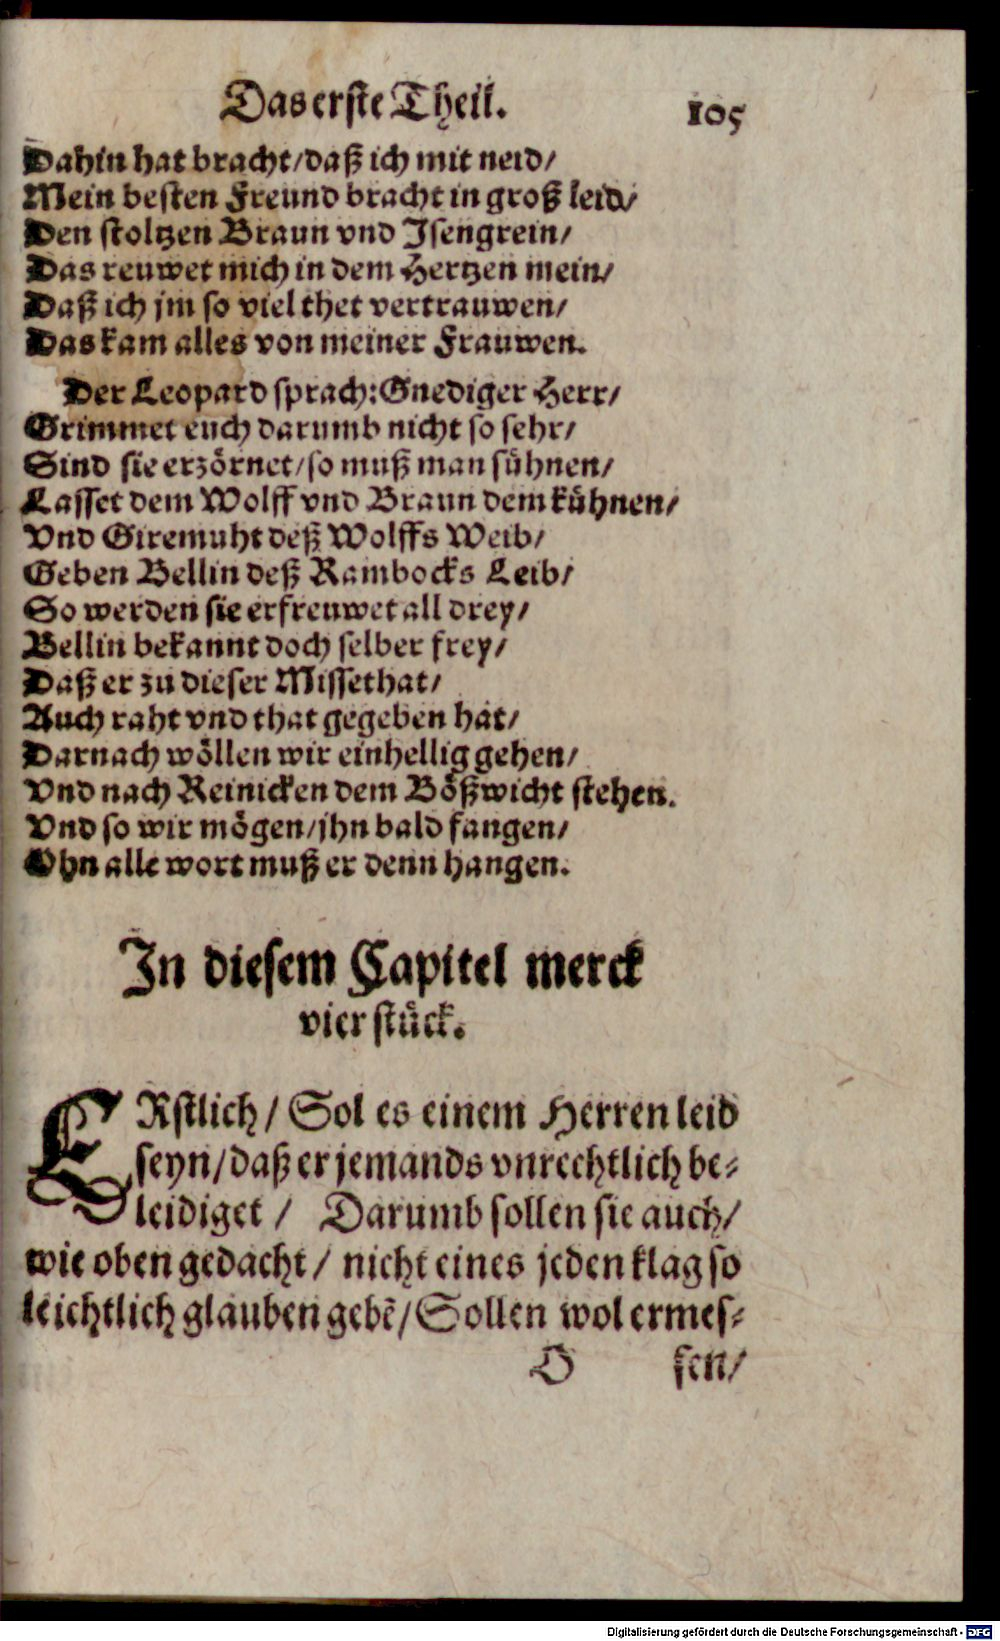 Das erste Theil. 105
Dahin hat bracht/daß ich mit neid/
Mein besten Freund bracht in groß leid/
Den stoltzen Braun vnd Isengrein/
Das reuwet mich in dem Hertzen mein/
Daß ich jm so viel thet vertrauwen/
Das kam alles von meiner Frauwen.
Der Leopard sprach: Gnediger Herr/
Grimmet euch darumb nicht so sehr/
Sind sie erzörnet/so muß man sühnen/
Lasset dem Wolff vnd Braun dem kühnen/
Vnd Giremuht deß Wolffs Weib/
Geben Bellin deß Rambocks Leib/
So werden sie erfreuwet all drey/
Bellin bekannt doch selber frey/
Daß er zu dieser Missethat/
Auch raht vnd that gegeben hat/
Darnach wöllen wir einhellig gehen/
Vnd nach Reinicken dem Bößwicht stehen.
Vnd so wir mögen/jhn bald fangen/
Ohn alle wort muß er denn hangen.
In diesem Capitel merck
vier stück.
ERstlich/ Sol es einem Herren leid
seyn/daß er jemands vnrechtlich be-
leidiget/ Darumb sollen sie auch/
wie oben gedacht/ nicht eines jeden klag so
leichtlich glauben gebẽ/Sollen wol ermes-
D sen/
Digitalisierung gefördert durch die Deutsche Forschungsgemeinschaft - DFG